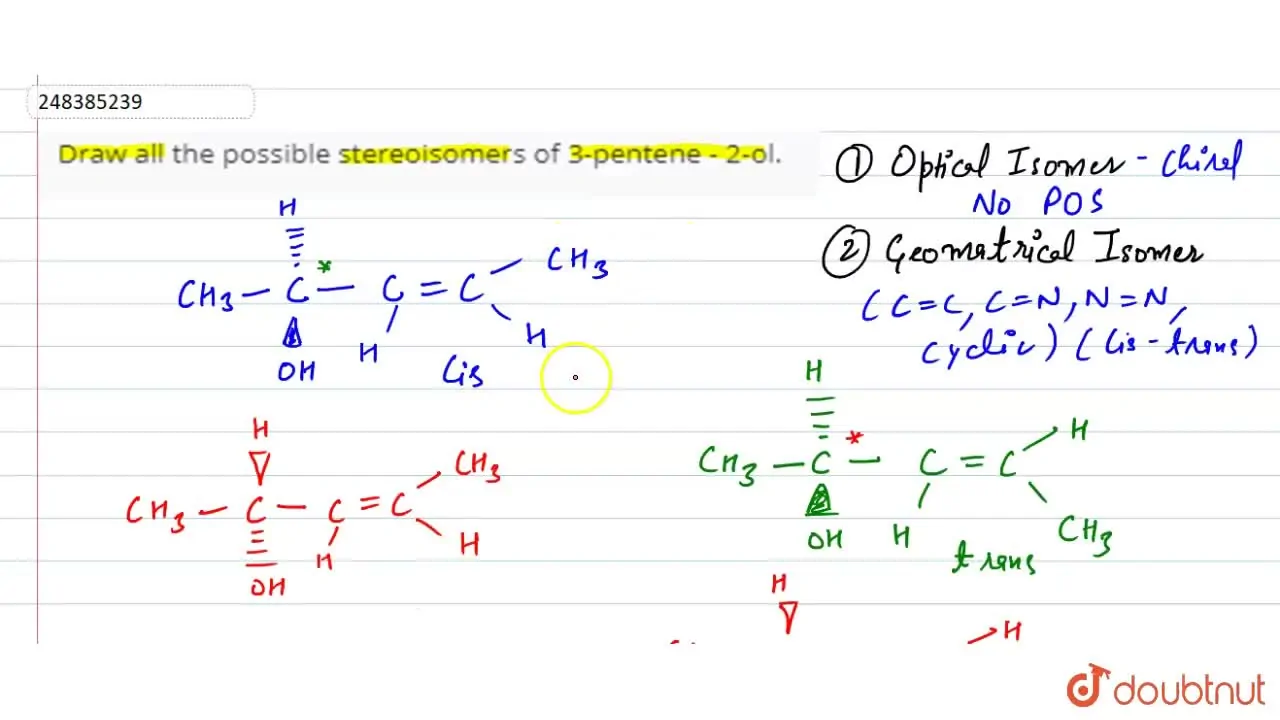 248385239
Draw all the possible stereoisomers of 3-pentene - 2-ol.
① Optical Isomer - Chiral
No POS
② Geometrical Isomer
(C=C, C=N, N=N,
Cyclic) (Cis-trans)
H
CH3 - C* - C = C CH3
OH H H
Cis
H
CH3 - C - C = C CH3
OH H H
H
CH3 - C* - C = C H
OH H CH3
trans
H
H
doubtnut